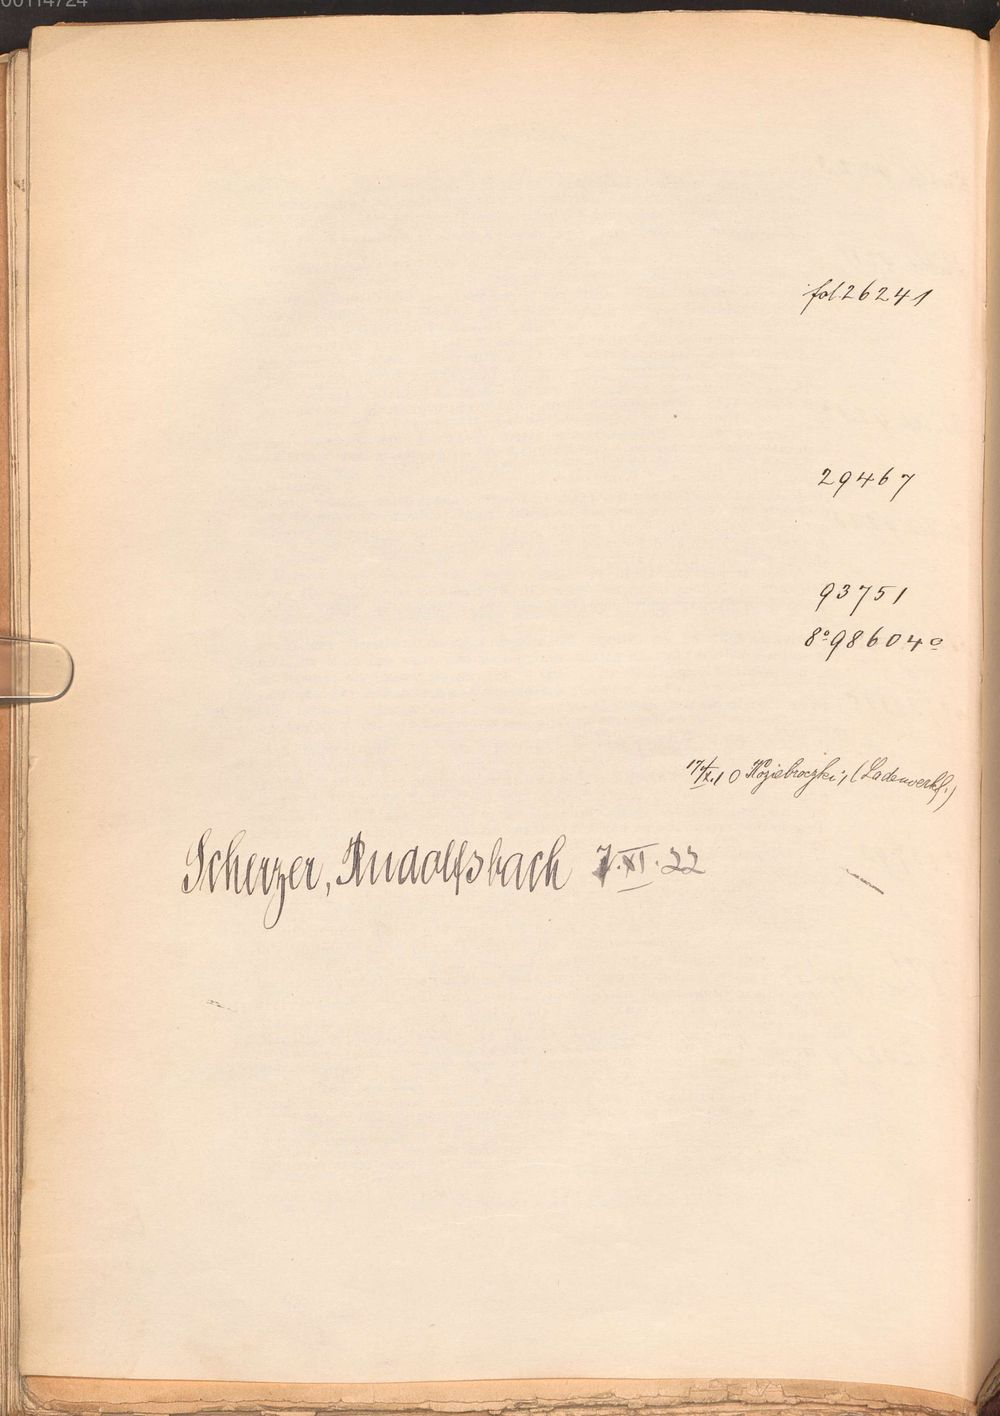 00114724
fol 26241
29467
93751
8º 98604º
17/X.10 Koziebroczki, (Ladenverkf.)
Scherzer, Rudolfsbach 7.XI.22